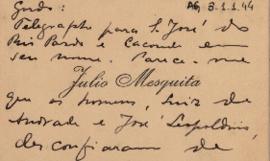 Gordo:
AG, 3-1-1.44
Telegraphe para S. José do
Rio Pardo e Caconde em
seu nome. Parece-me
Julio Mesquita
que os homens, Luiz de
Andrade e José Leopoldino,
desconfiaram de